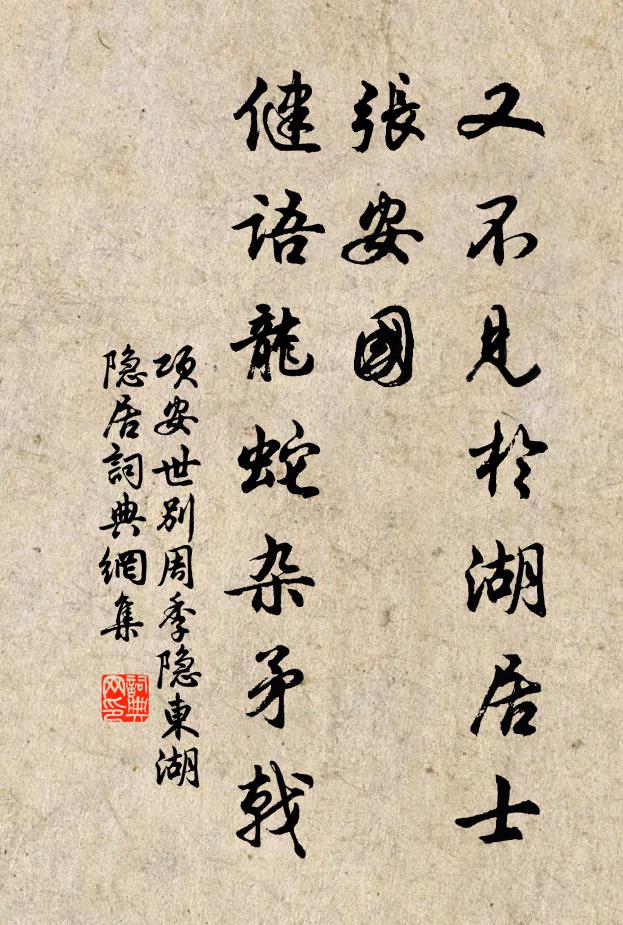 又不見於湖居士
張安國
健語龍蛇杂矛戟
项安世别周季隐東湖
隐居詞典網集
詞典网印